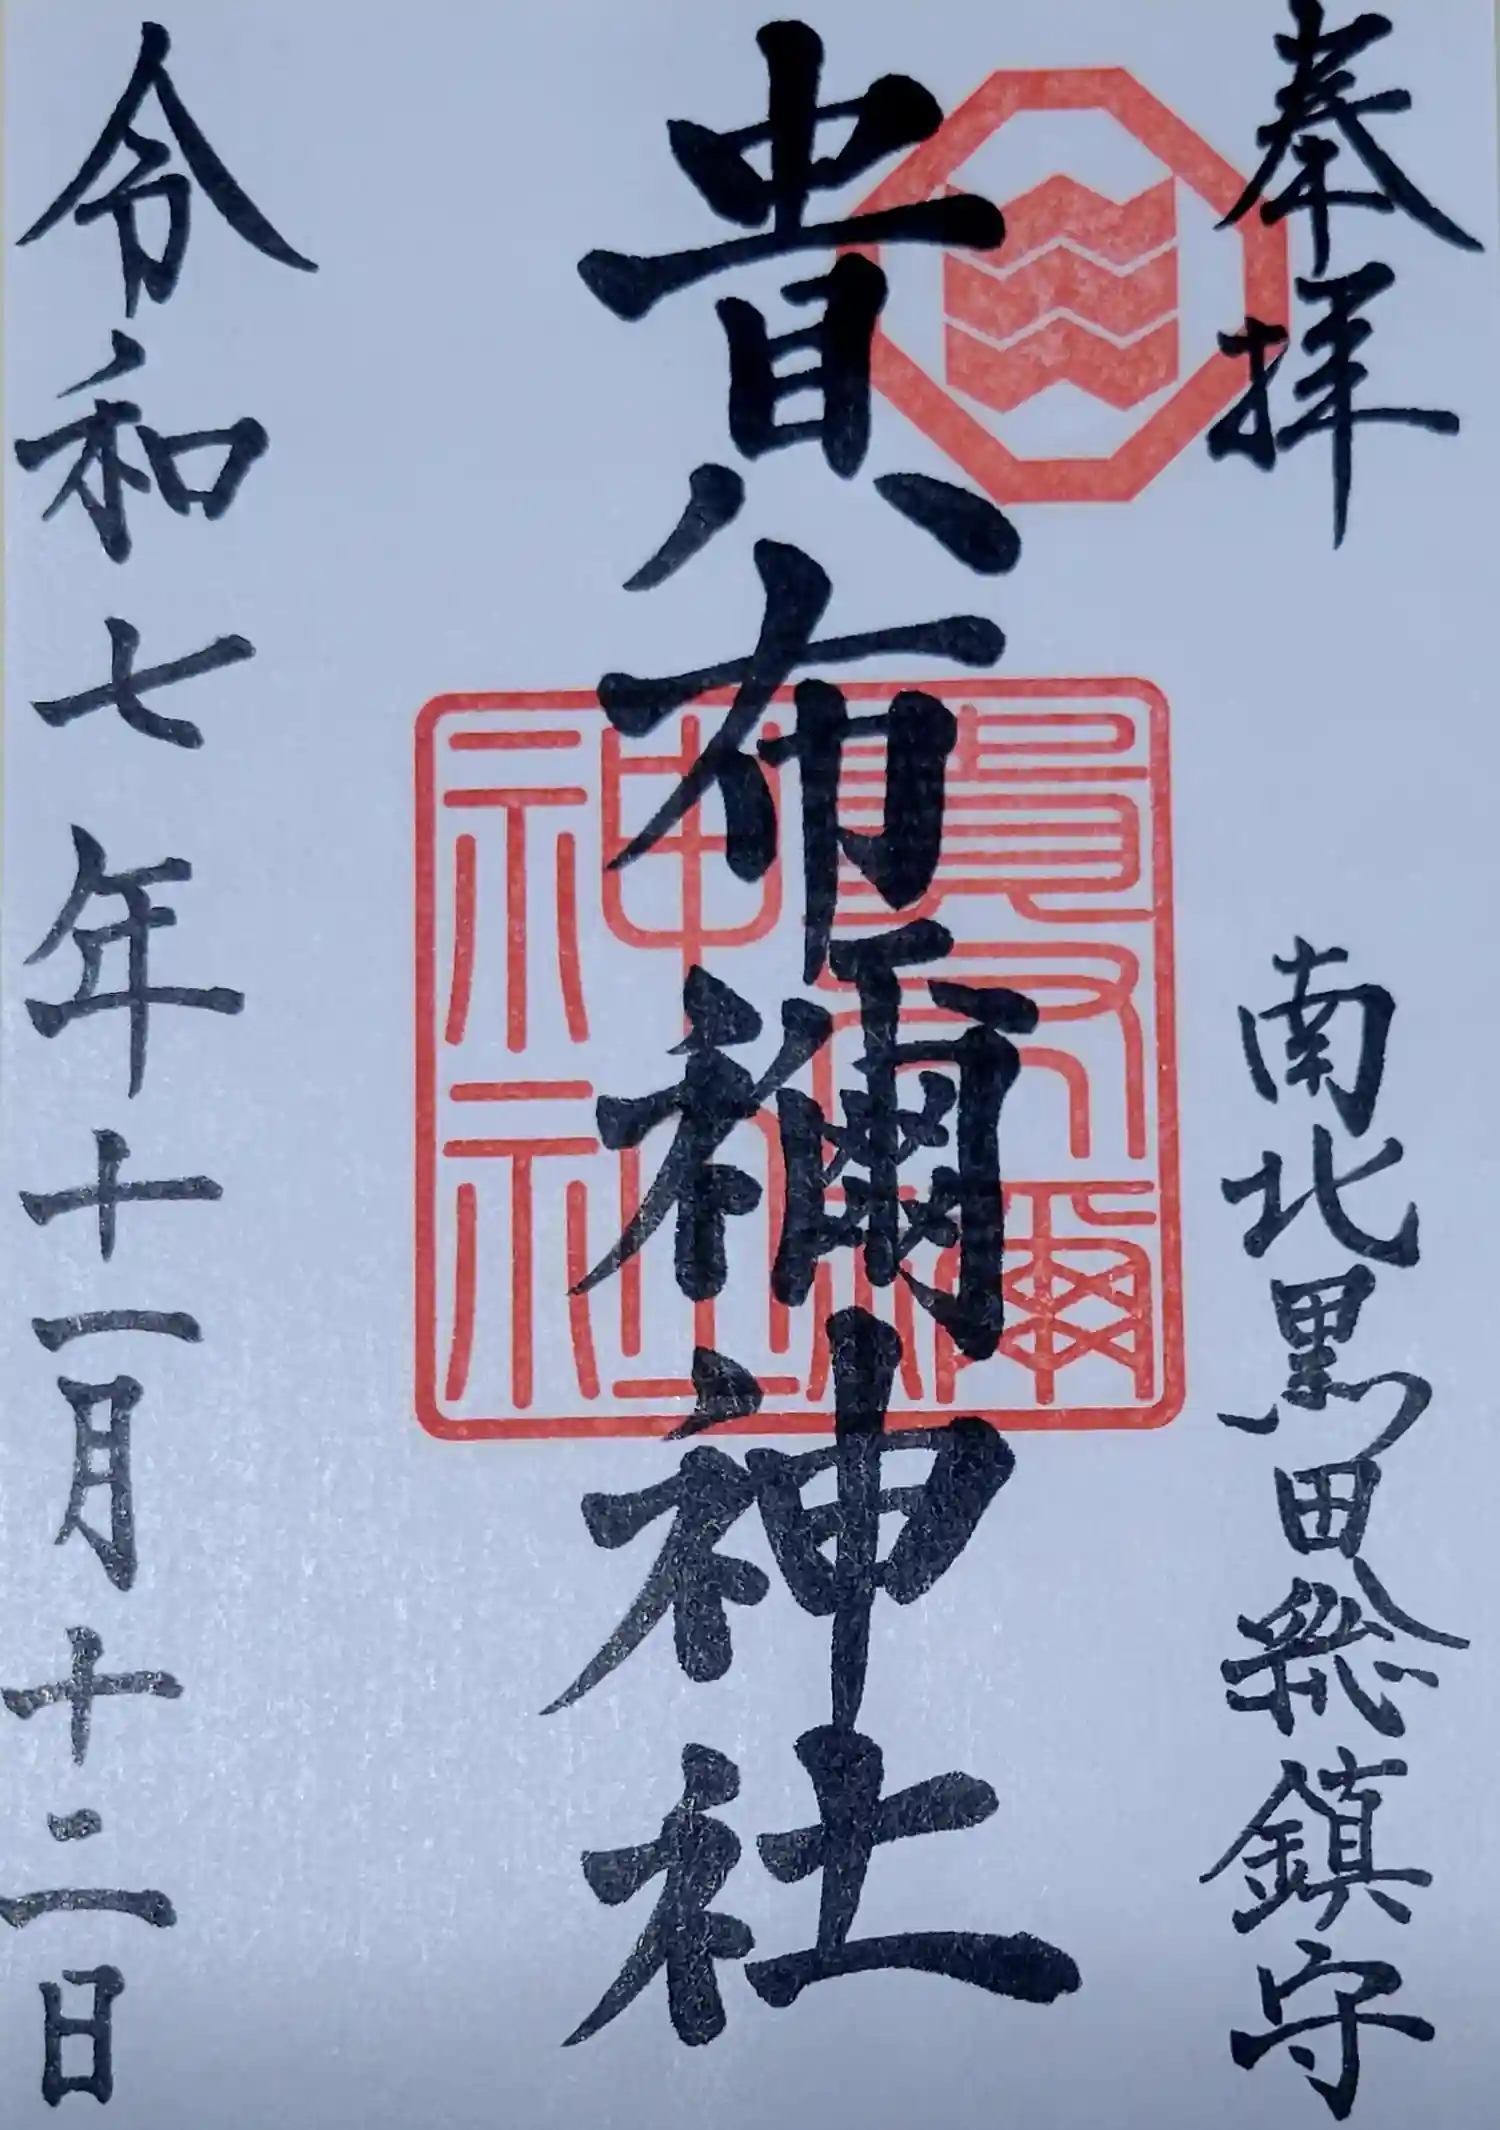 奉拝
南北黒田総鎮守
貴布禰神社
貴布禰神社
令和七年十一月十二日